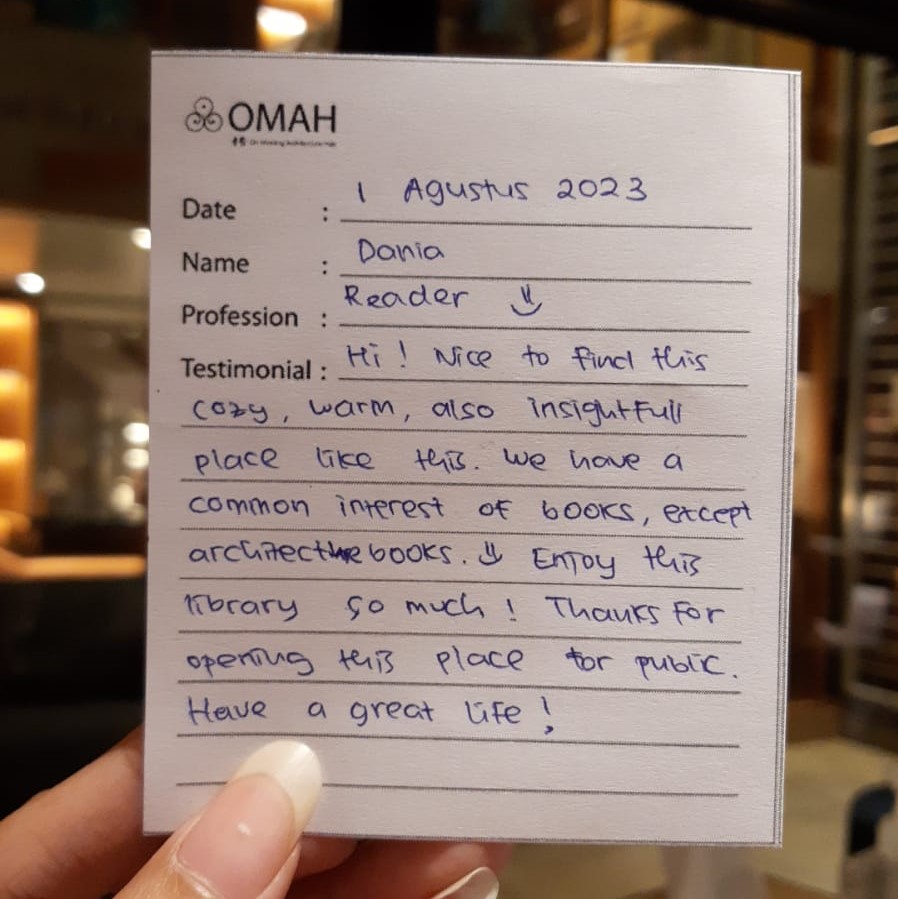 OMAH
Date : 1 Agustus 2023
Name : Dania
Profession : Reader
Testimonial : Hi! Nice to find this
cozy, warm, also insightfull
place like this. We have a
common interest of books, except
architecture books. Enjoy this
library so much! Thanks for
opening this place for public.
Have a great life!